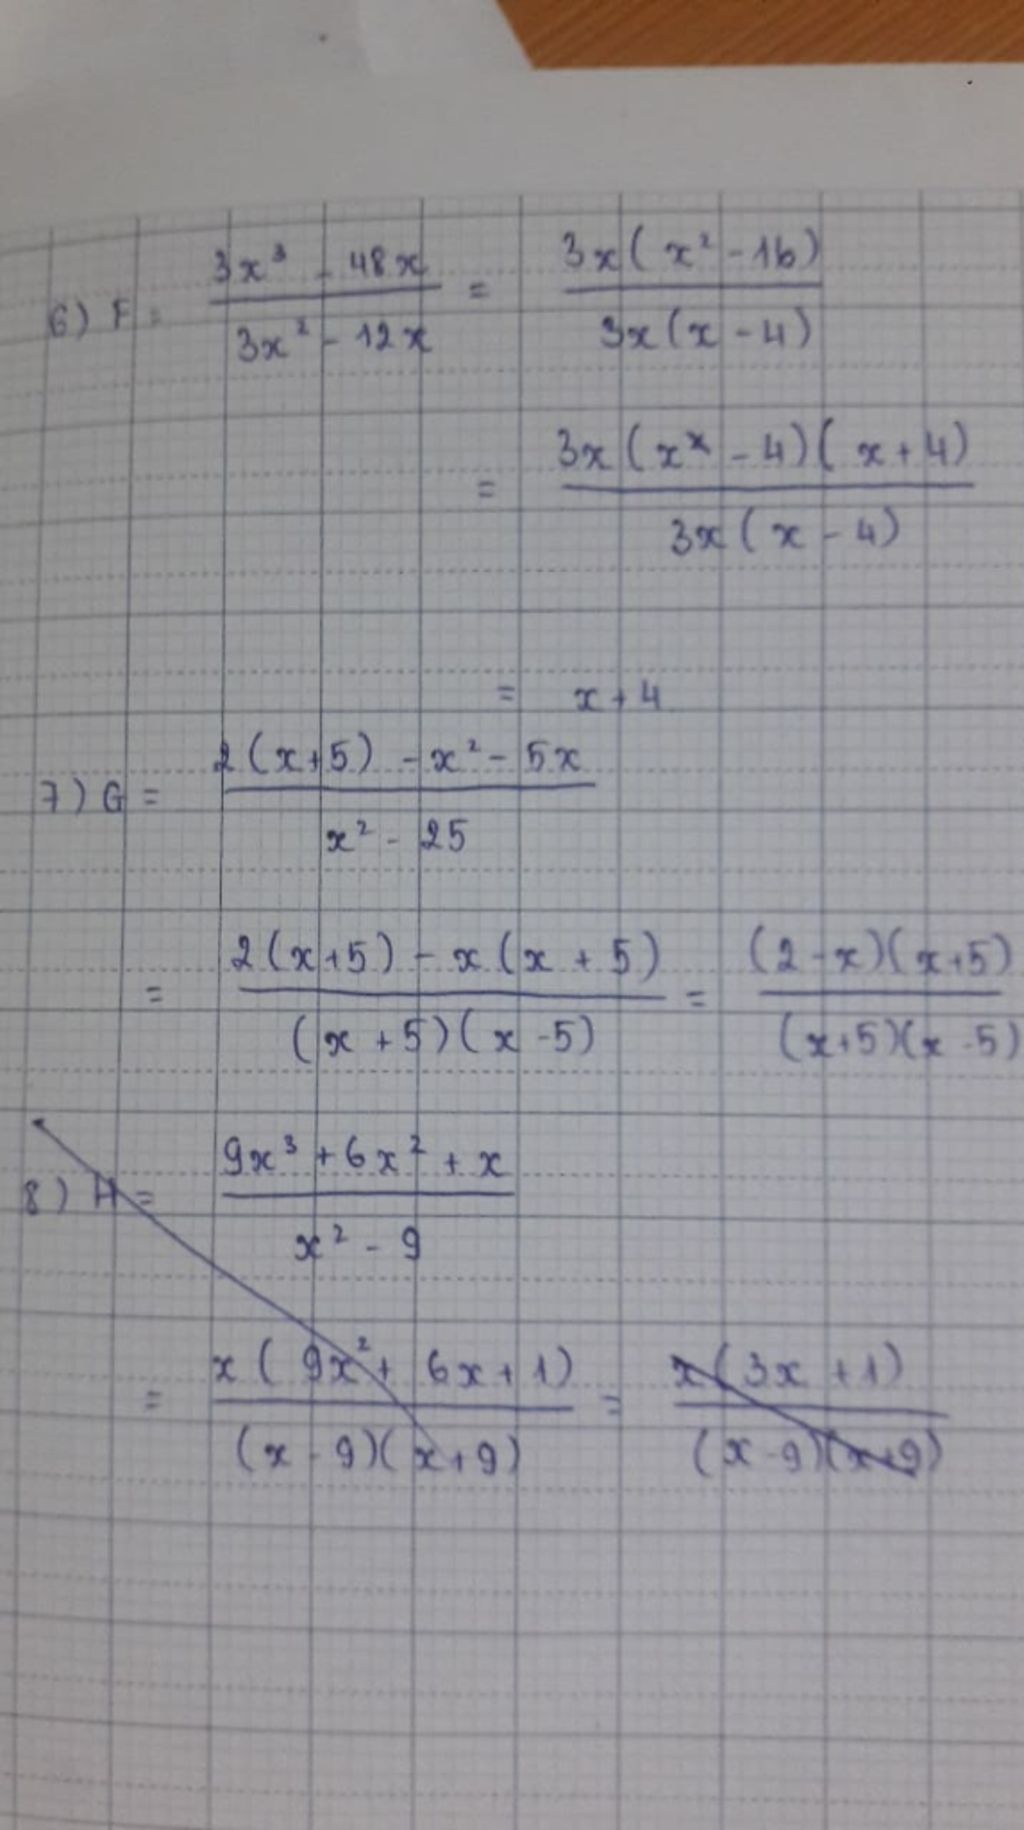 6) F = (3x³ - 48x)/(3x² - 12x) = (3x(x² - 16))/(3x(x - 4))
= (3x(xˣ - 4)(x + 4))/(3x(x - 4))
= x + 4
7) G = (2(x+5) - x² - 5x)/(x² - 25)
= (2(x+5) - x(x + 5))/((x + 5)(x - 5)) = ((2 - x)(x+5))/((x+5)(x - 5))
8) H = (9x³ + 6x² + x)/(x² - 9)
= (x(9x² + 6x + 1))/((x - 9)(x + 9)) = (x(3x + 1))/((x - 9)(x+9))